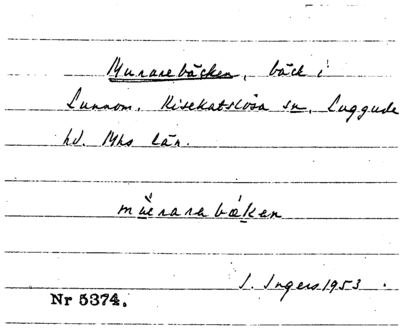 Murarebäcken, bäck i
Lunnom. Risekatslösa sn. Luggude
hd. Mhs län.
mùrarabäken
I. Ingers 1953.
Nr 5374.